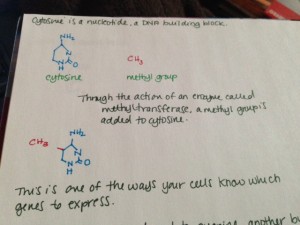 Cytosine is a nucleotide, a DNA building block.
NH₂
N
N
H
O
CH₃
cytosine
methyl group
Through the action of an enzyme called
methyltransferase, a methyl group is
added to cytosine.
NH₂
CH₃
N
N
H
O
This is one of the ways your cells know which
genes to express.
another